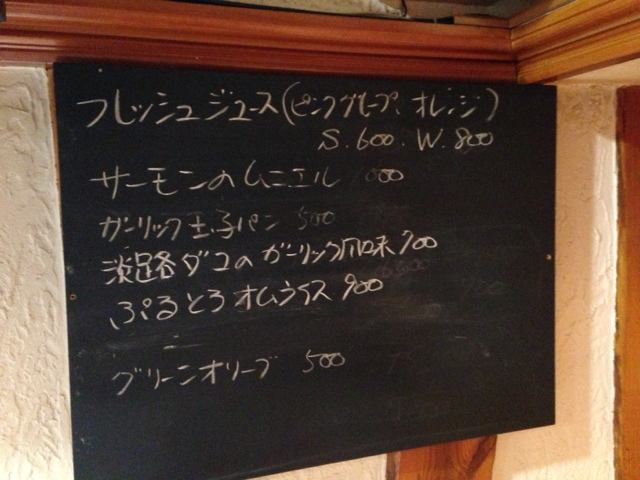 フレッシュジュース(ピンクグレープ、オレンジ)
S.600.W.800
サーモンのムニエル 1000
ガーリック玉子パン 500
淡路ダコのガーリック風味 700
ぷるとろオムライス 900
グリーンオリーブ 500